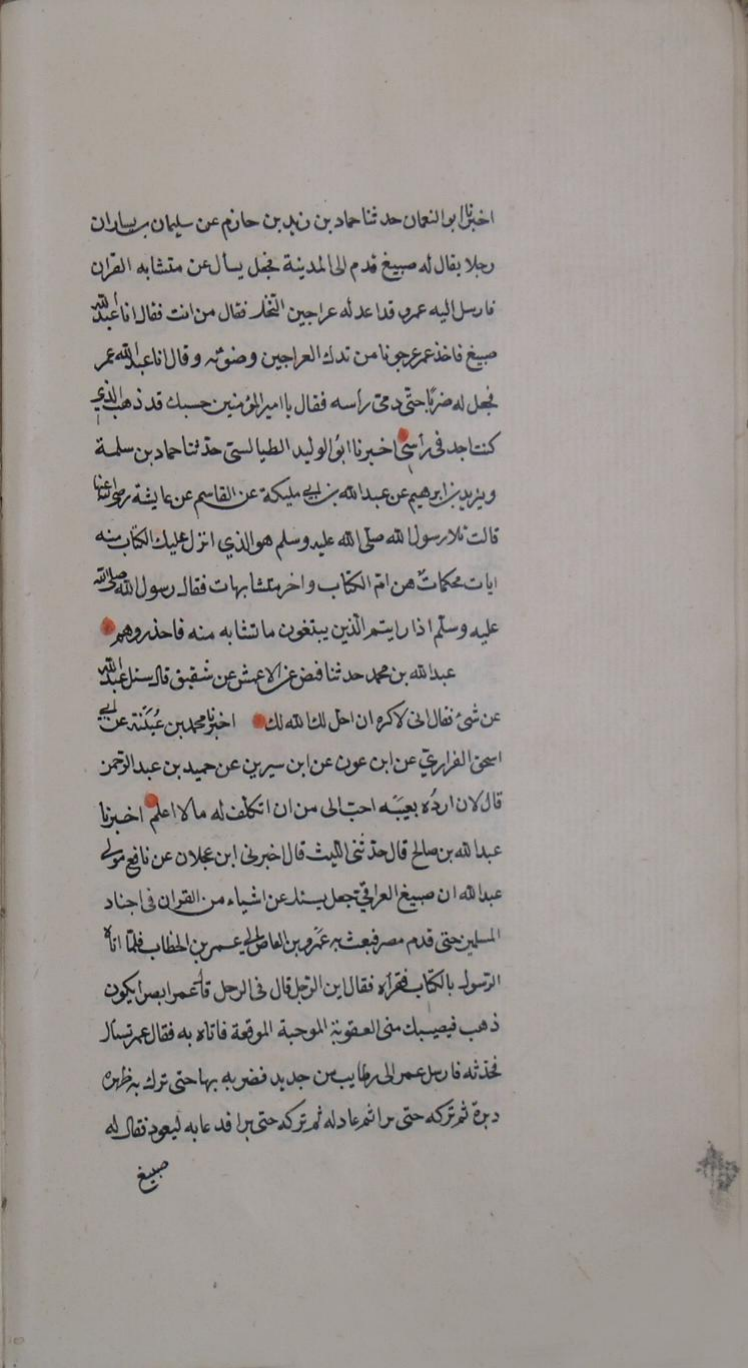 اخبرنا ابو النعمان حدثنا حماد بن زيد بن حازم عن سليمان بن يسار ان
رجلا يقال له صبيغ قدم الى المدينة فجعل يسأل عن متشابه القران
فارسل اليه عمر وقد اعد له عراجين النخل فقال من انت فقال انا عبد الله
صبيغ فاخذ عمر عرجونا من تلك العراجين وضربه وقال انا عبد الله عمر
فجعل له ضربًا حتى دمى رأسه فقال يا امير المؤمنين حسبك قد ذهب الذي
كنت اجد في رأسي اخبرنا ابو الوليد الطيالسي حدثنا حماد بن سلمة
ويزيد بن ابرهيم عن عبد الله بن ابي مليكة عن القاسم عن عايشة رضى الله عنها
قالت تلا رسول الله صلى الله عليه وسلم هو الذي انزل عليك الكتاب منه
ايات محكمات هن ام الكتاب واخر متشابهات فقال رسول الله صلى الله
عليه وسلم اذا رايتم الذين يبتغون ما تشابه منه فاحذروهم
عبد الله بن محمد حدثنا فض عن الاعمش عن شقيق قال سئل عبد الله
عن شئ فقال انى لاكره ان احل لك الله لك اخبرنا محمد بن عيينة عن ابي
اسحق الفزاري عن ابن عون عن ابن سيرين عن حميد بن عبد الرحمن
قال لان ارده بعيه احب الى من ان اتكلف له مالا اعلم اخبرنا
عبد الله بن صالح قال حدثنى الليث قال اخبرنى ابن عجلان عن نافع مولى
عبد الله ان صبيغ العراقي جعل يسئل عن اشياء من القران فى اجناد
المسلمين حتى قدم مصر فبعث به عمرو بن العاص الى عمر بن الخطاب فلما اتاه
الرسول بالكتاب فقرأه فقال اين الرجل قال فى الرحل قال عمر ابصر ايكون
ذهب فيصيبك منى العقوبة الموجبة الموقعة فاتاه به فقال عمر تسال
محدثه فارسل عمر الى رطايب من جديد فضربه بها حتى ترك به ظهره
دبرة ثم تركه حتى برا ثم عاد له ثم تركه حتى برا فدعا به ليعود فقال له
صبيغ